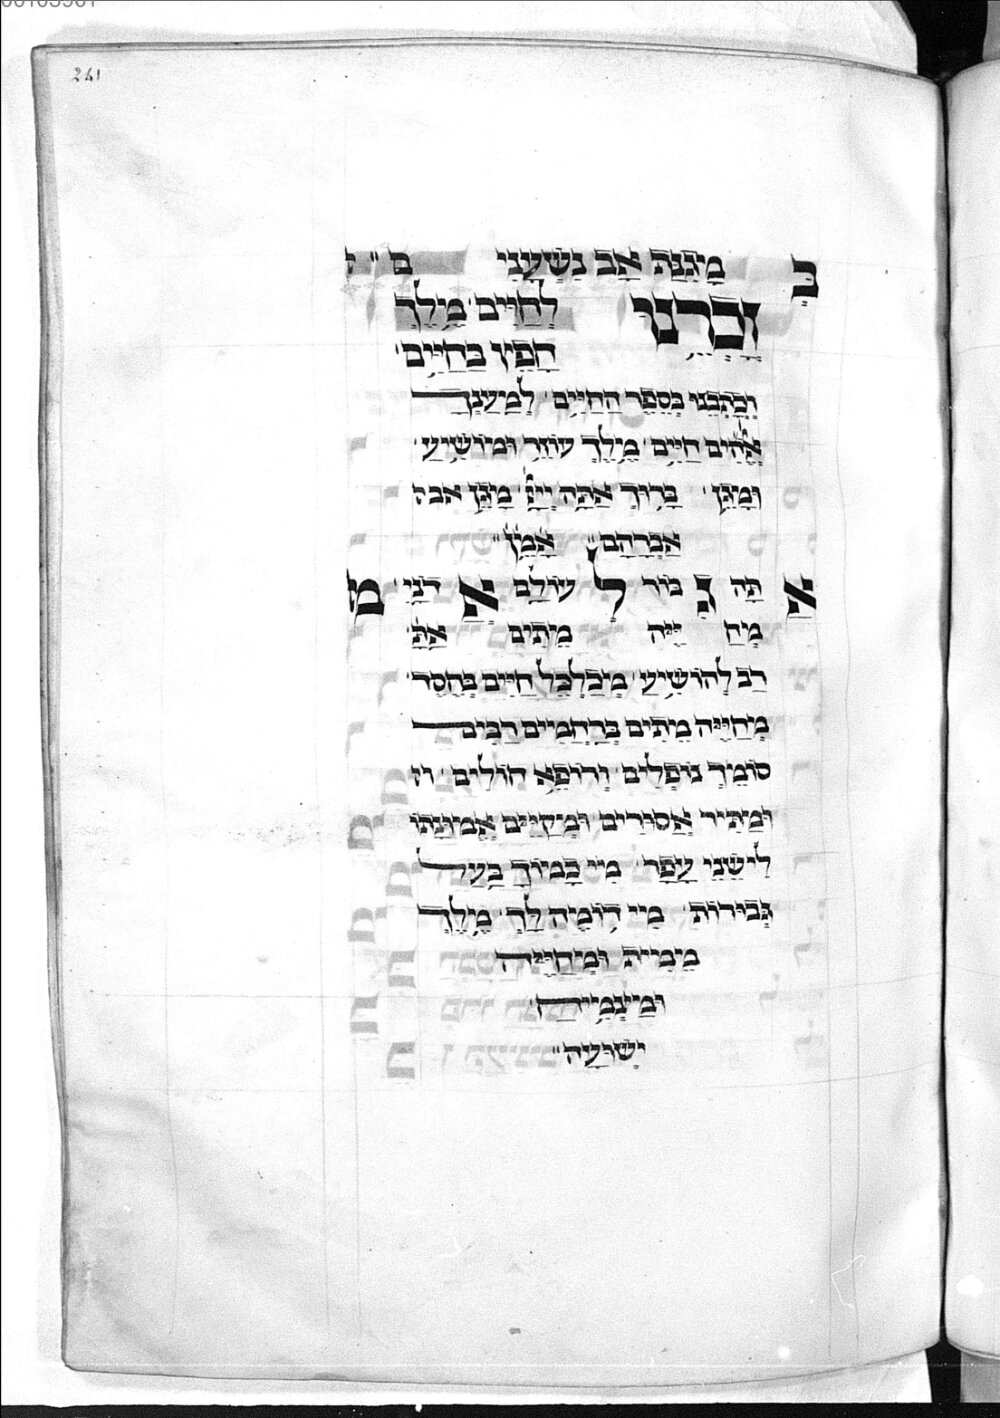 241
ב מגנת אב נשעני
זכרנו לחיים מלך
חפץ בחיים
וכתבנו בספר החיים למענך
אלהים חיים מלך עוזר ומושיע
ומגן ברוך אתה ייי מגן אבה
אברהם אמן
אתה גבור לעולם אדני מ
מחייה מתים את
רב להושיע מכלכל חיים בחסד
מחייה מתים ברחמים רבים
סומך נופלים ורופא חולים
ומתיר אסורים ומקיים אמונתו
לישני עפר מי כמוך בעל
גבורות מי דומה לך מלך
ממית ומחייה
ומצמיח
ישועה